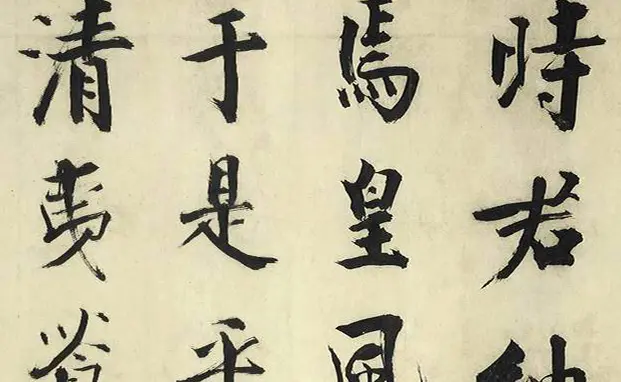 時若
焉皇風
于是乎
清夷